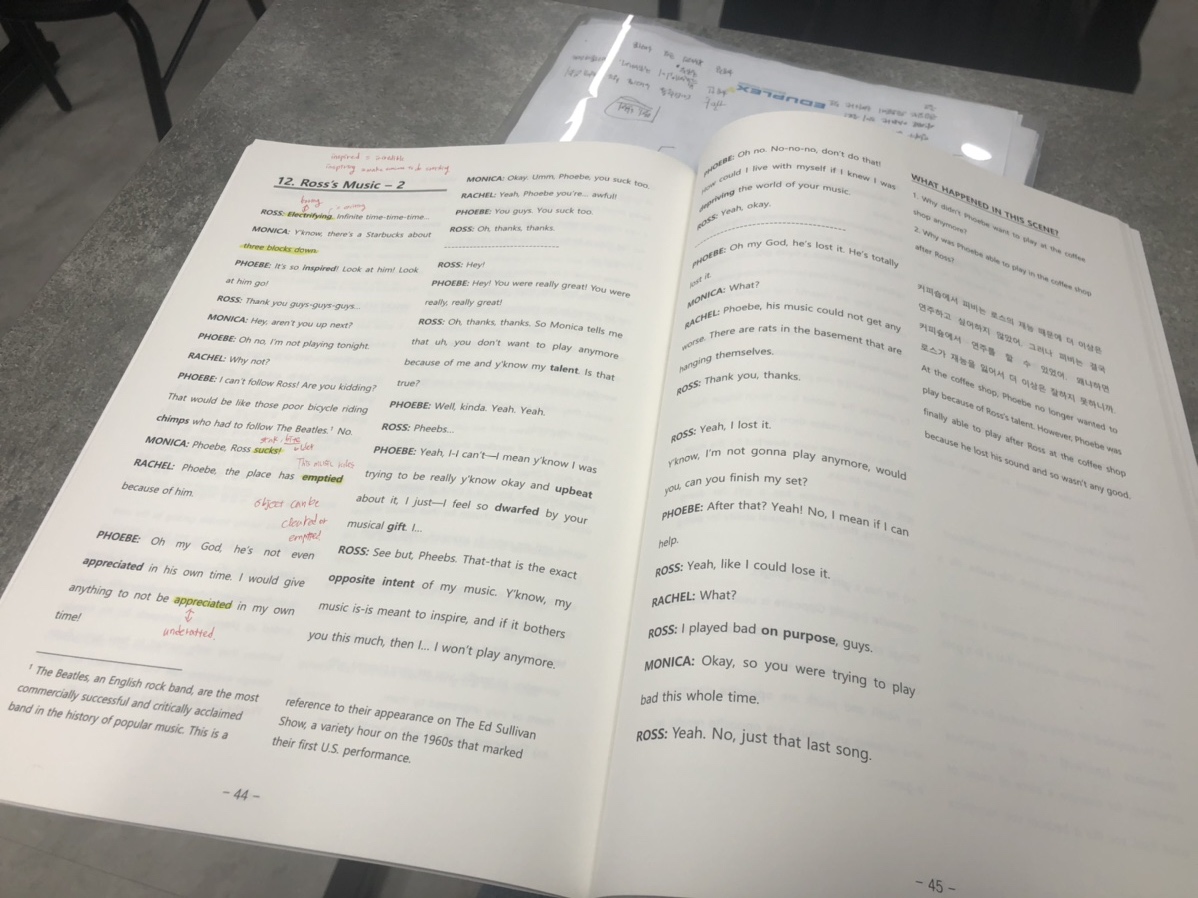 12. Ross's Music – 2
ROSS: Electrifying. Infinite time-time-time...
MONICA: Y'know, there's a Starbucks about
three blocks down.
PHOEBE: It's so inspired! Look at him! Look
at him go!
ROSS: Thank you guys-guys-guys...
MONICA: Hey, aren't you up next?
PHOEBE: Oh no, I'm not playing tonight.
RACHEL: Why not?
PHOEBE: I can't follow Ross! Are you kidding?
That would be like those poor bicycle riding
chimps who had to follow The Beatles.¹ No.
MONICA: Phoebe, Ross sucks!
RACHEL: Phoebe, the place has emptied
because of him.
object can be
cleared or
emptied
PHOEBE: Oh my God, he's not even
appreciated in his own time. I would give
anything to not be appreciated in my own
time!
underrated.
¹ The Beatles, an English rock band, are the most
commercially successful and critically acclaimed
band in the history of popular music. This is a
MONICA: Okay. Umm, Phoebe, you suck too...
RACHEL: Yeah, Phoebe you're... awful!
PHOEBE: You guys. You suck too.
ROSS: Oh, thanks, thanks.
ROSS: Hey!
PHOEBE: Hey! You were really great! You were
really, really great!
ROSS: Oh, thanks, thanks. So Monica tells me
that uh, you don't want to play anymore
because of me and y'know my talent. Is that
true?
PHOEBE: Well, kinda. Yeah. Yeah.
ROSS: Pheebs...
PHOEBE: Yeah, I-I can't—I mean y'know I was
trying to be really y'know okay and upbeat
about it, I just—I feel so dwarfed by your
musical gift. I...
ROSS: See but, Pheebs. That-that is the exact
opposite intent of my music. Y'know, my
music is-is meant to inspire, and if it bothers
you this much, then I... I won't play anymore.
reference to their appearance on The Ed Sullivan
Show, a variety hour on the 1960s that marked
their first U.S. performance.
– 44 –
PHOEBE: Oh no. No-no-no, don't do that!
How could I live with myself if I knew I was
depriving the world of your music.
ROSS: Yeah, okay.
PHOEBE: Oh my God, he's lost it. He's totally
lost it.
MONICA: What?
RACHEL: Phoebe, his music could not get any
worse. There are rats in the basement that are
hanging themselves.
ROSS: Thank you, thanks.
ROSS: Yeah, I lost it.
Y'know, I'm not gonna play anymore, would
you, can you finish my set?
PHOEBE: After that? Yeah! No, I mean if I can
help.
ROSS: Yeah, like I could lose it.
RACHEL: What?
ROSS: I played bad on purpose, guys.
MONICA: Okay, so you were trying to play
bad this whole time.
ROSS: Yeah. No, just that last song.
WHAT HAPPENED IN THIS SCENE?
1. Why didn't Phoebe want to play at the coffee
shop anymore?
2. Why was Phoebe able to play in the coffee shop
after Ross?
커피숍에서 피비는 로스의 재능 때문에 더 이상은
연주하고 싶어하지 않았어. 그러나 피비는 결국
커피숍에서 연주를 할 수 있었어. 왜냐하면
로스가 재능을 잃어서 더 이상은 잘하지 못하니까.
At the coffee shop, Phoebe no longer wanted to
play because of Ross's talent. However, Phoebe was
finally able to play after Ross at the coffee shop
because he lost his sound and so wasn't any good.
– 45 –
EDUPLEX